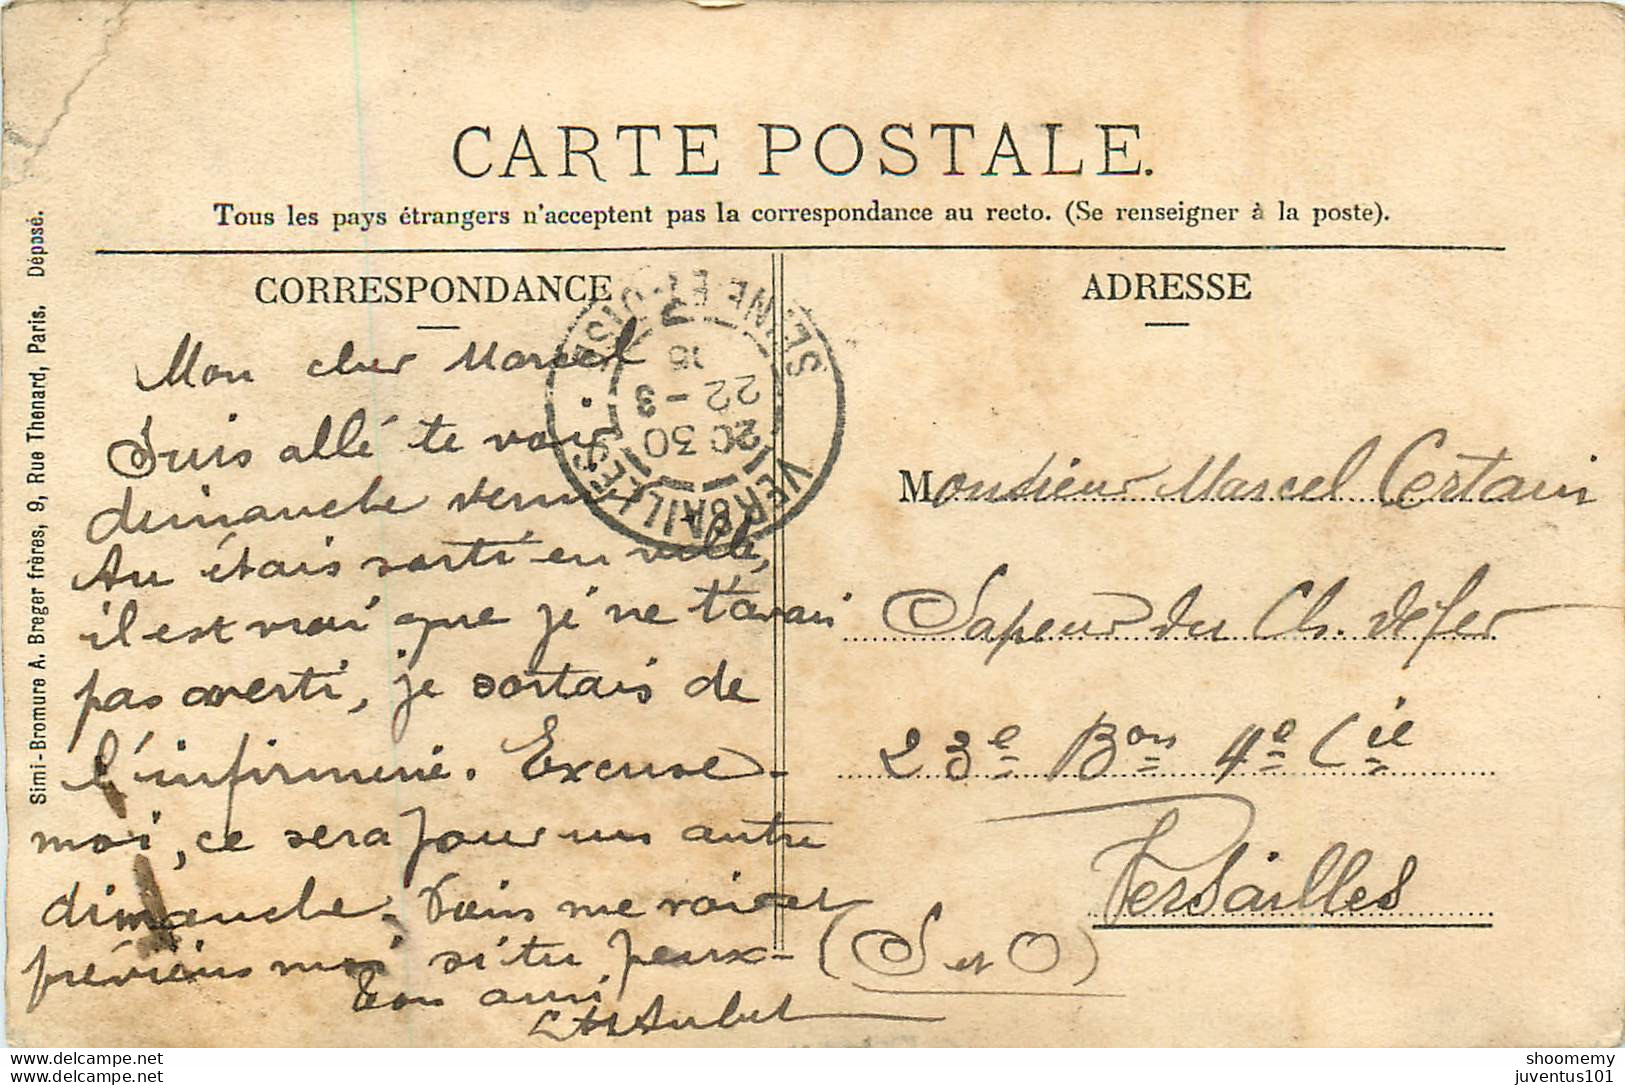 CARTE POSTALE.
Tous les pays étrangers n'acceptent pas la correspondance au recto. (Se renseigner à la poste).
CORRESPONDANCE
Mon cher Marcel
Suis allé te voir
dimanche dernier
Au étais sorti en ville,
il est vrai que je ne t'avais
pas averti, je sortais de
l'infirmerie. Excuse-
moi, ce sera pour un autre
dimanche. Viens me voir et
préviens moi si tu peux-
Ton ami
ADRESSE
Monsieur Marcel Certain
Sapeur du Ch. de fer
23e Bon 4e Cie
Versailles
(S et O)
VERSAILLES
SEINE-ET-OISE
20 30
22 - 3
Simi-Bromure A. Breger frères, 9, Rue Thénard, Paris. Déposé.
juventus101 sur delcampe.net
juventus101 sur delcampe.net
shoomemy
juventus101